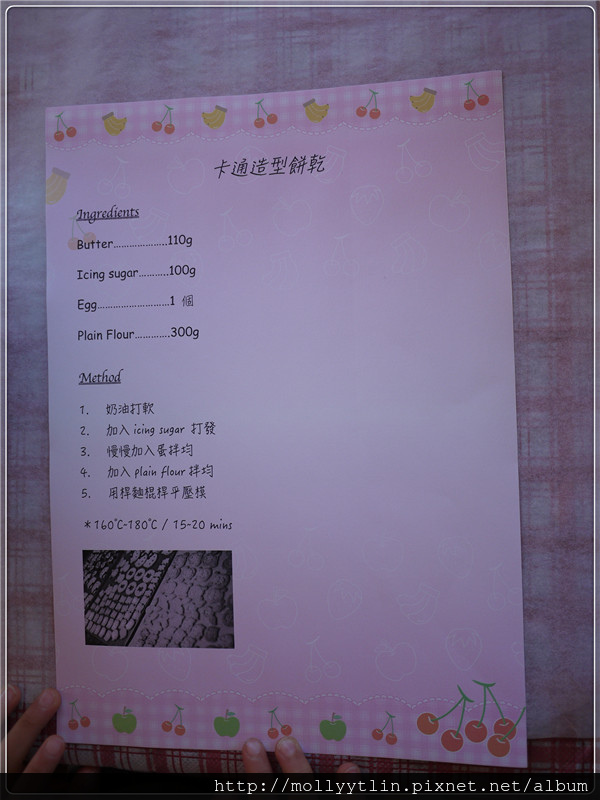 卡通造型餅乾
Ingredients
Butter....................110g
Icing sugar...........100g
Egg...........................1 個
Plain Flour.............300g
Method
1. 奶油打軟
2. 加入icing sugar 打發
3. 慢慢加入蛋拌均
4. 加入plain flour拌均
5. 用桿麵棍桿平壓模
*160°C-180°C / 15-20 mins
http://mollyytlin.pixnet.net/album